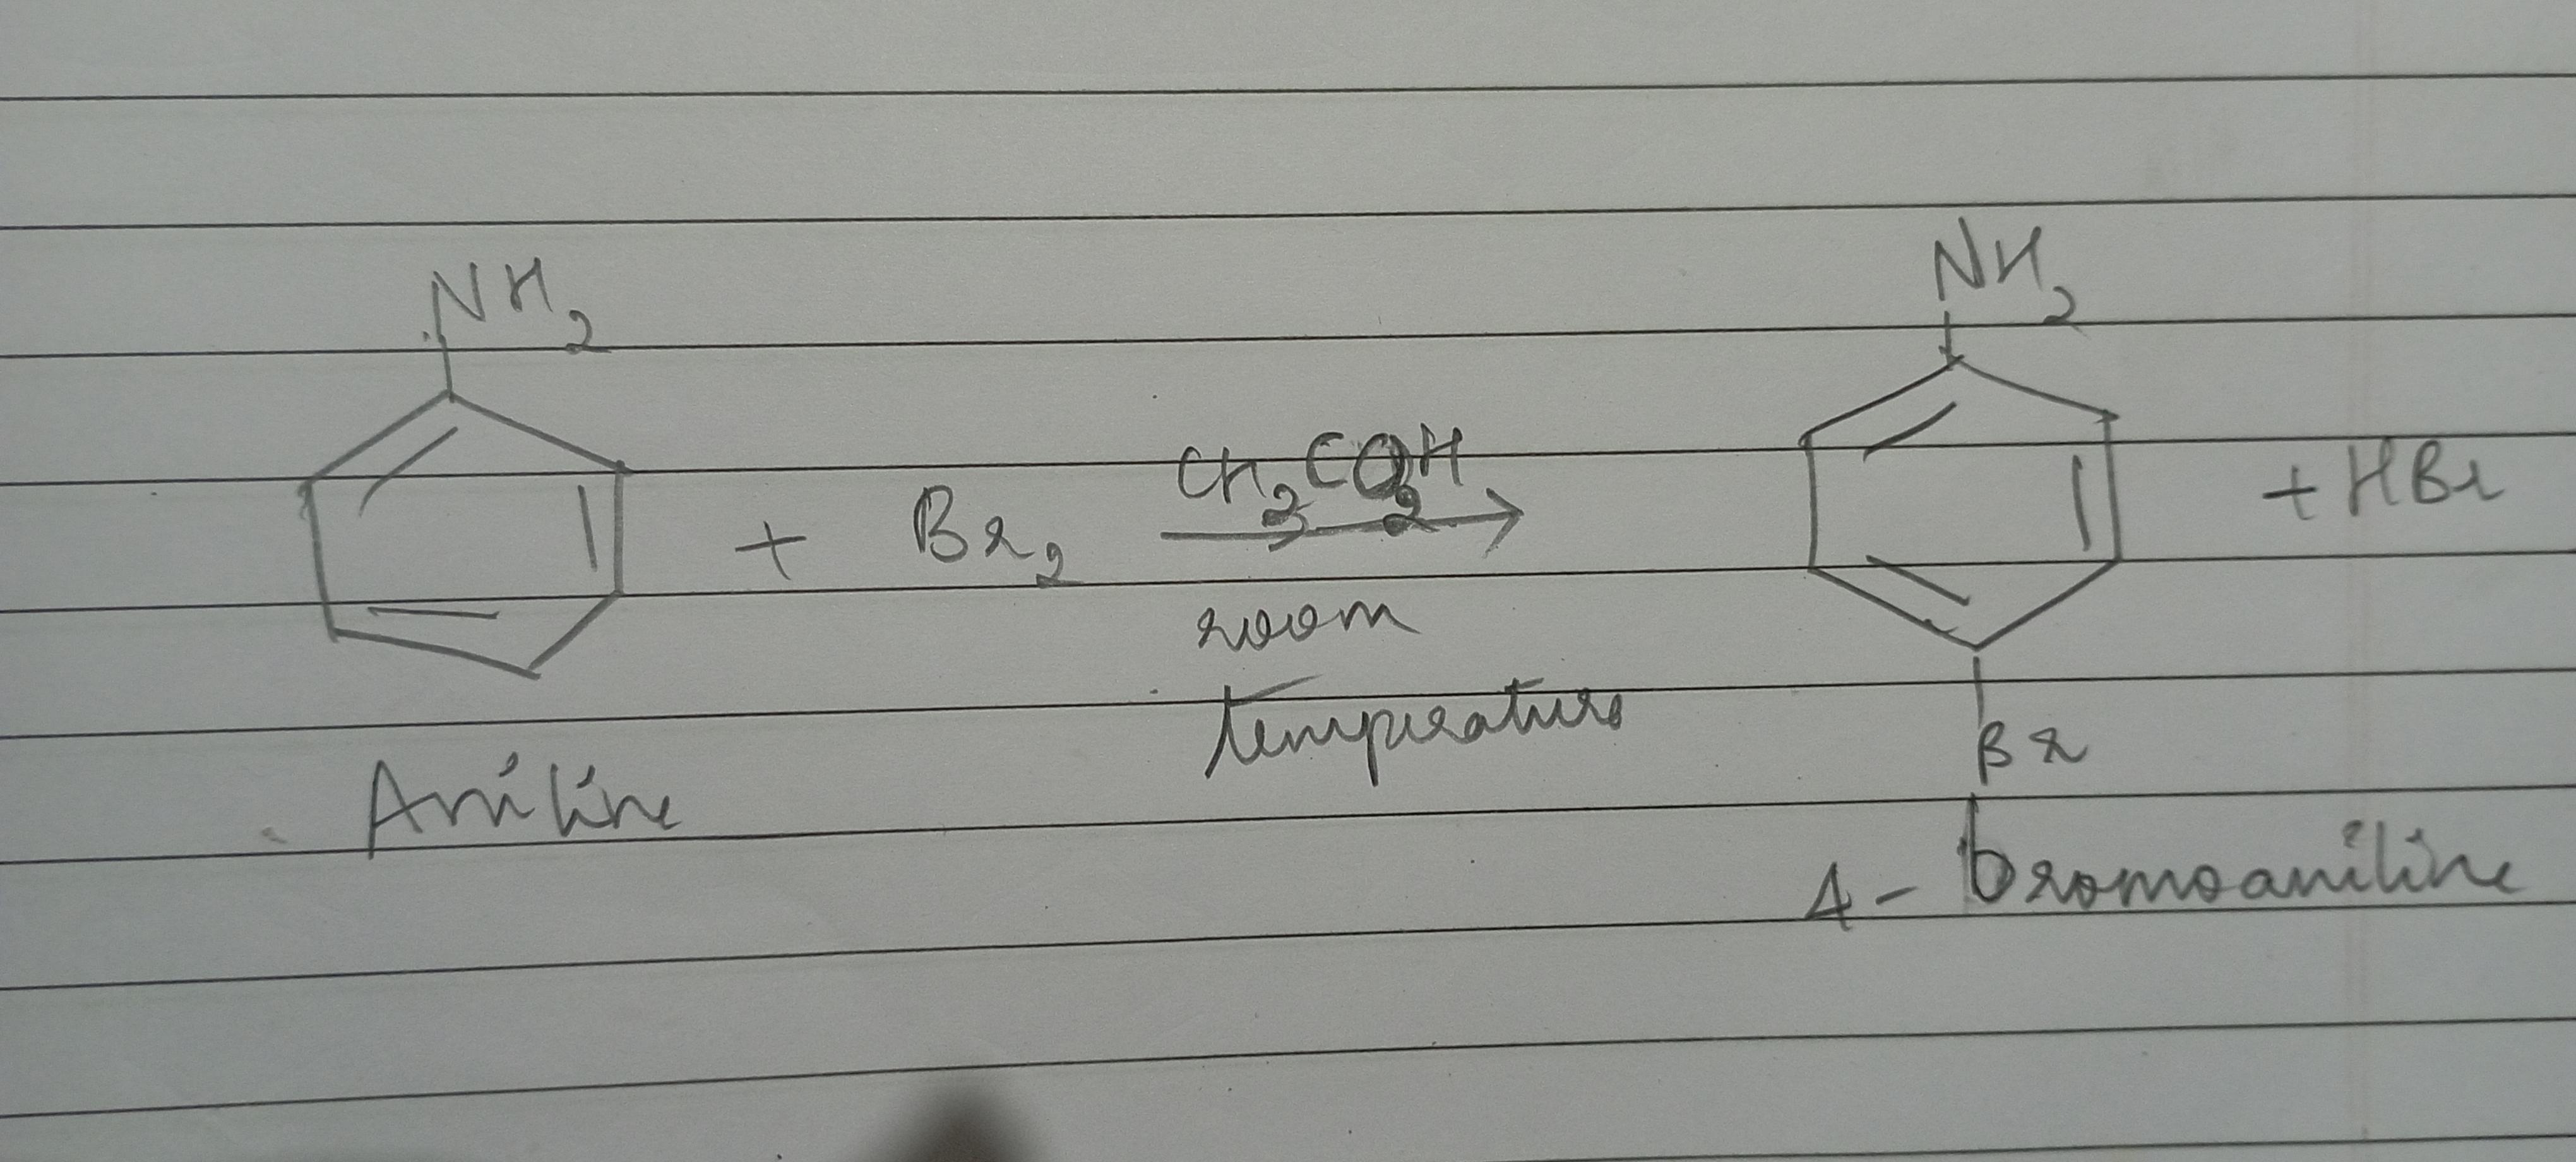 NH₂
NH₂
+ Br₂
CH₃CO₂H
room
temperature
+ HBr
Br
Aniline
4- bromoaniline